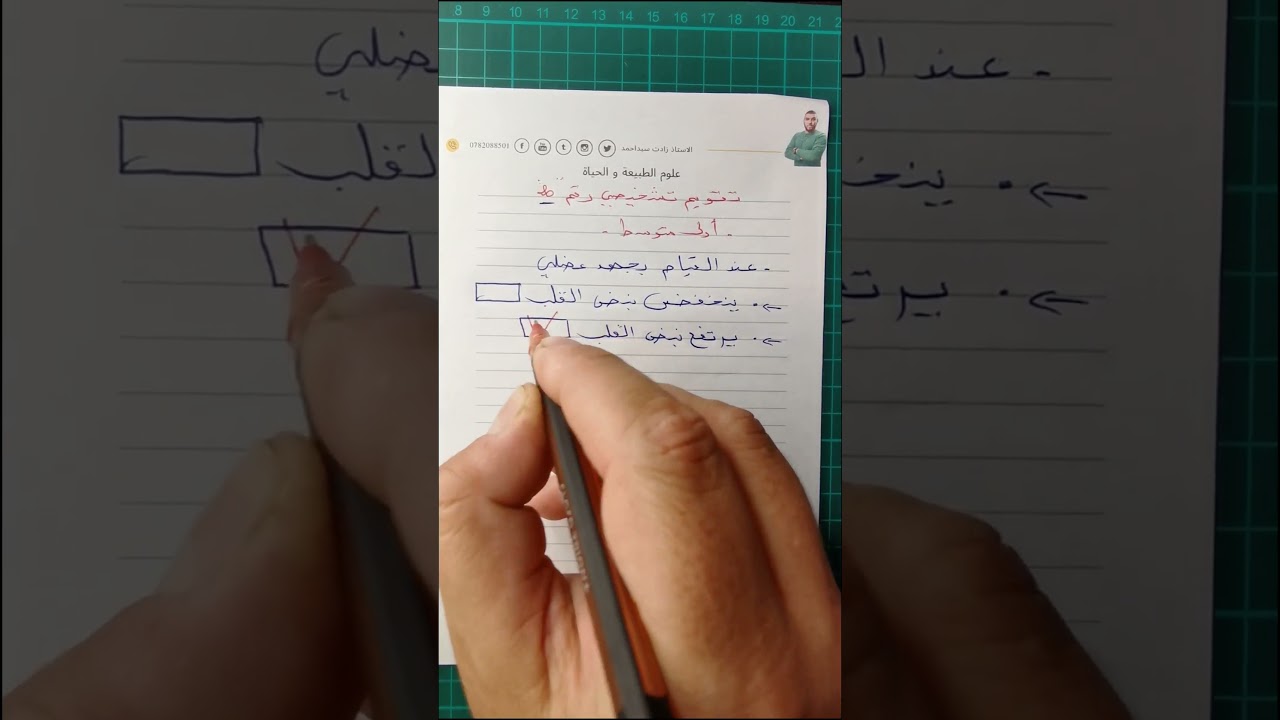 8 9 10 11 12 13 14 15 16 17 18 19 20 21
الاستاذ زادت سيداحمد 0782088501
علوم الطبيعة و الحياة
تقويم تشخيصي رقم
- أولى متوسط -
- عند القيام بجهد عضلي
ينخفض نبض القلب
يرتفع نبض القلب